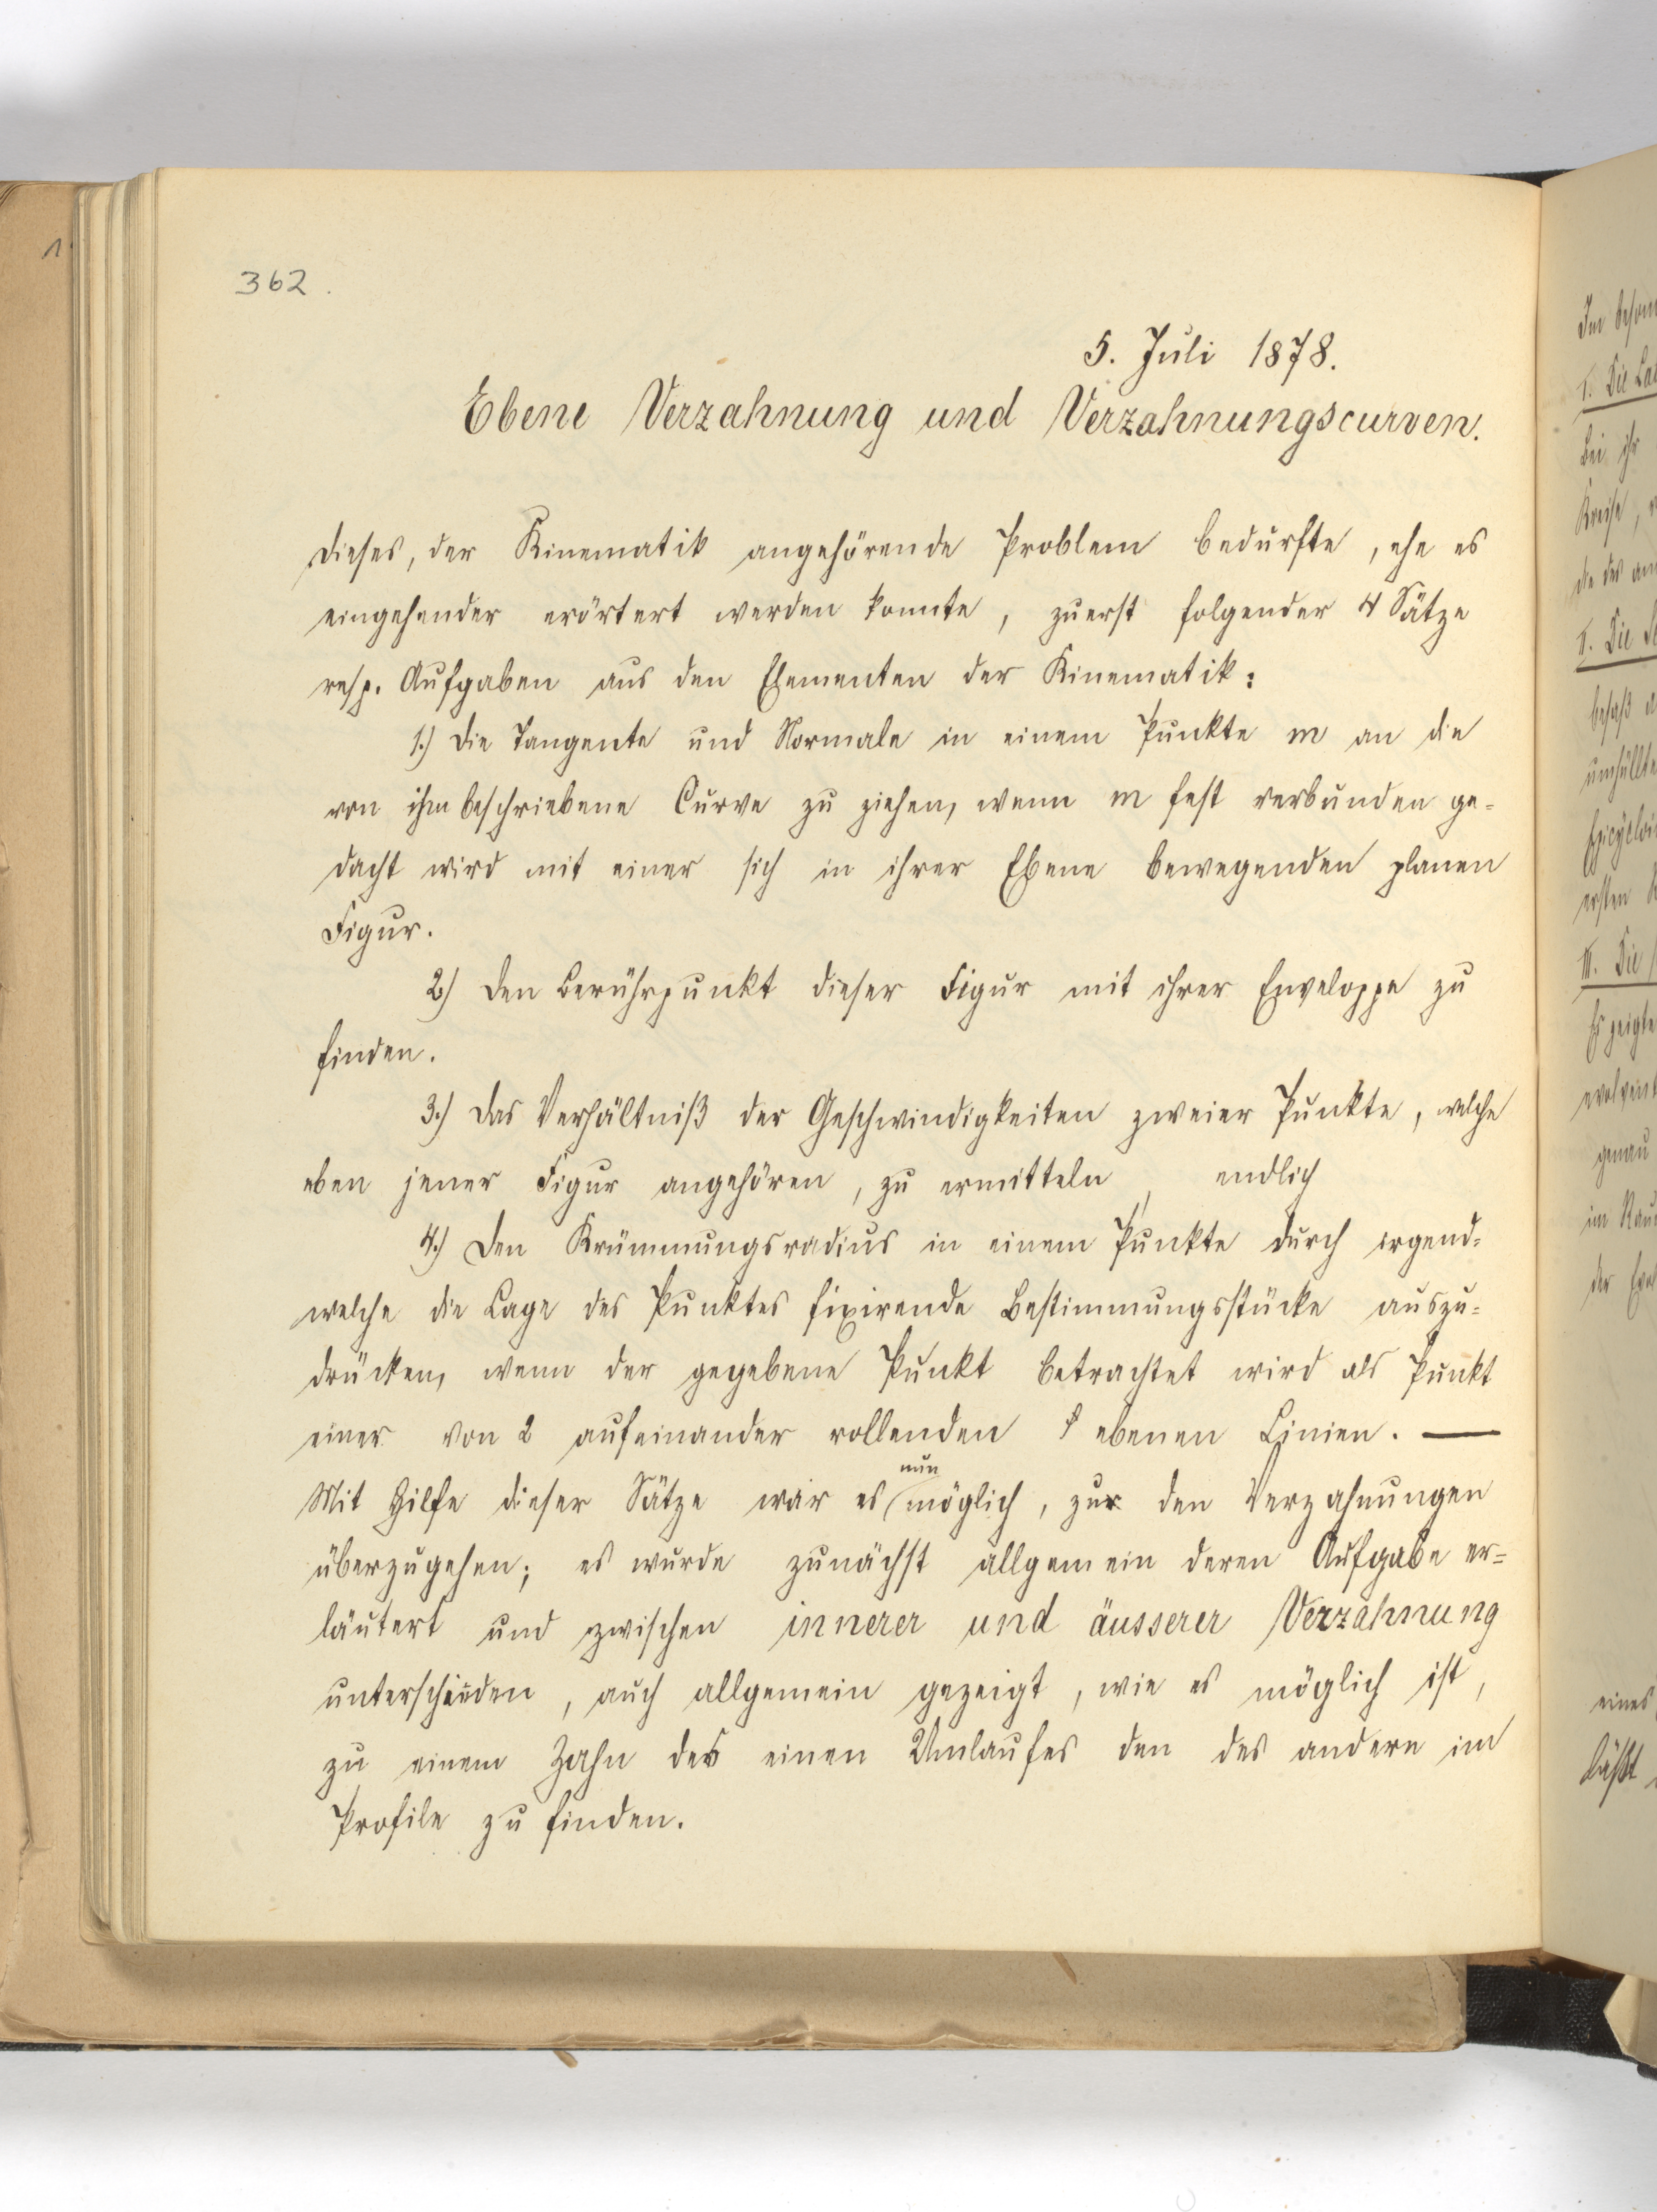 362.
5. Juli 1878.
Ebene Verzahnung und Verzahnungscurven.
Dieses, der Kinematik angehörende Problem bedurfte, ehe es
eingehender erörtert werden konnte, zuerst folgender 4 Sätze
resp. Aufgaben aus den Elementen der Kinematik:
1.) Die Tangente und Normale in einem Punkte m an die
von ihm beschriebene Curve zu ziehen, wenn m fest verbunden ge=
dacht wird mit einer sich in ihrer Ebene bewegenden planen
Figur.
2.) Den Berührpunkt dieser Figur mit ihrer Enveloppe zu
finden.
3.) Das Verhältniß der Geschwindigkeiten zweier Punkte, welche
eben jener Figur angehören, zu ermitteln, endlich
4.) Den Krümmungsradius in einem Punkte durch irgend=
welche die Lage des Punktes fixirende Bestimmungsstücke auszu=
drücken, wenn der gegebene Punkt betrachtet wird als Punkt
einer von 2 aufeinander rollenden ebenen Linien. —
nun
Mit Hilfe dieser Sätze war es möglich, zu den Verzahnungen
überzugehen; es wurde zunächst allgemein deren Aufgabe er=
läutert und zwischen innerer und äusserer Verzahnung
unterschieden, auch allgemein gezeigt, wie es möglich ist,
zu einem Zahn des einen Umlaufes den des andern im
Profile zu finden.
I. Die
Bei ihr
Kreise,
II. Die
besaß
ersten
III. Die
Es zeigte
genau
eines
läßt